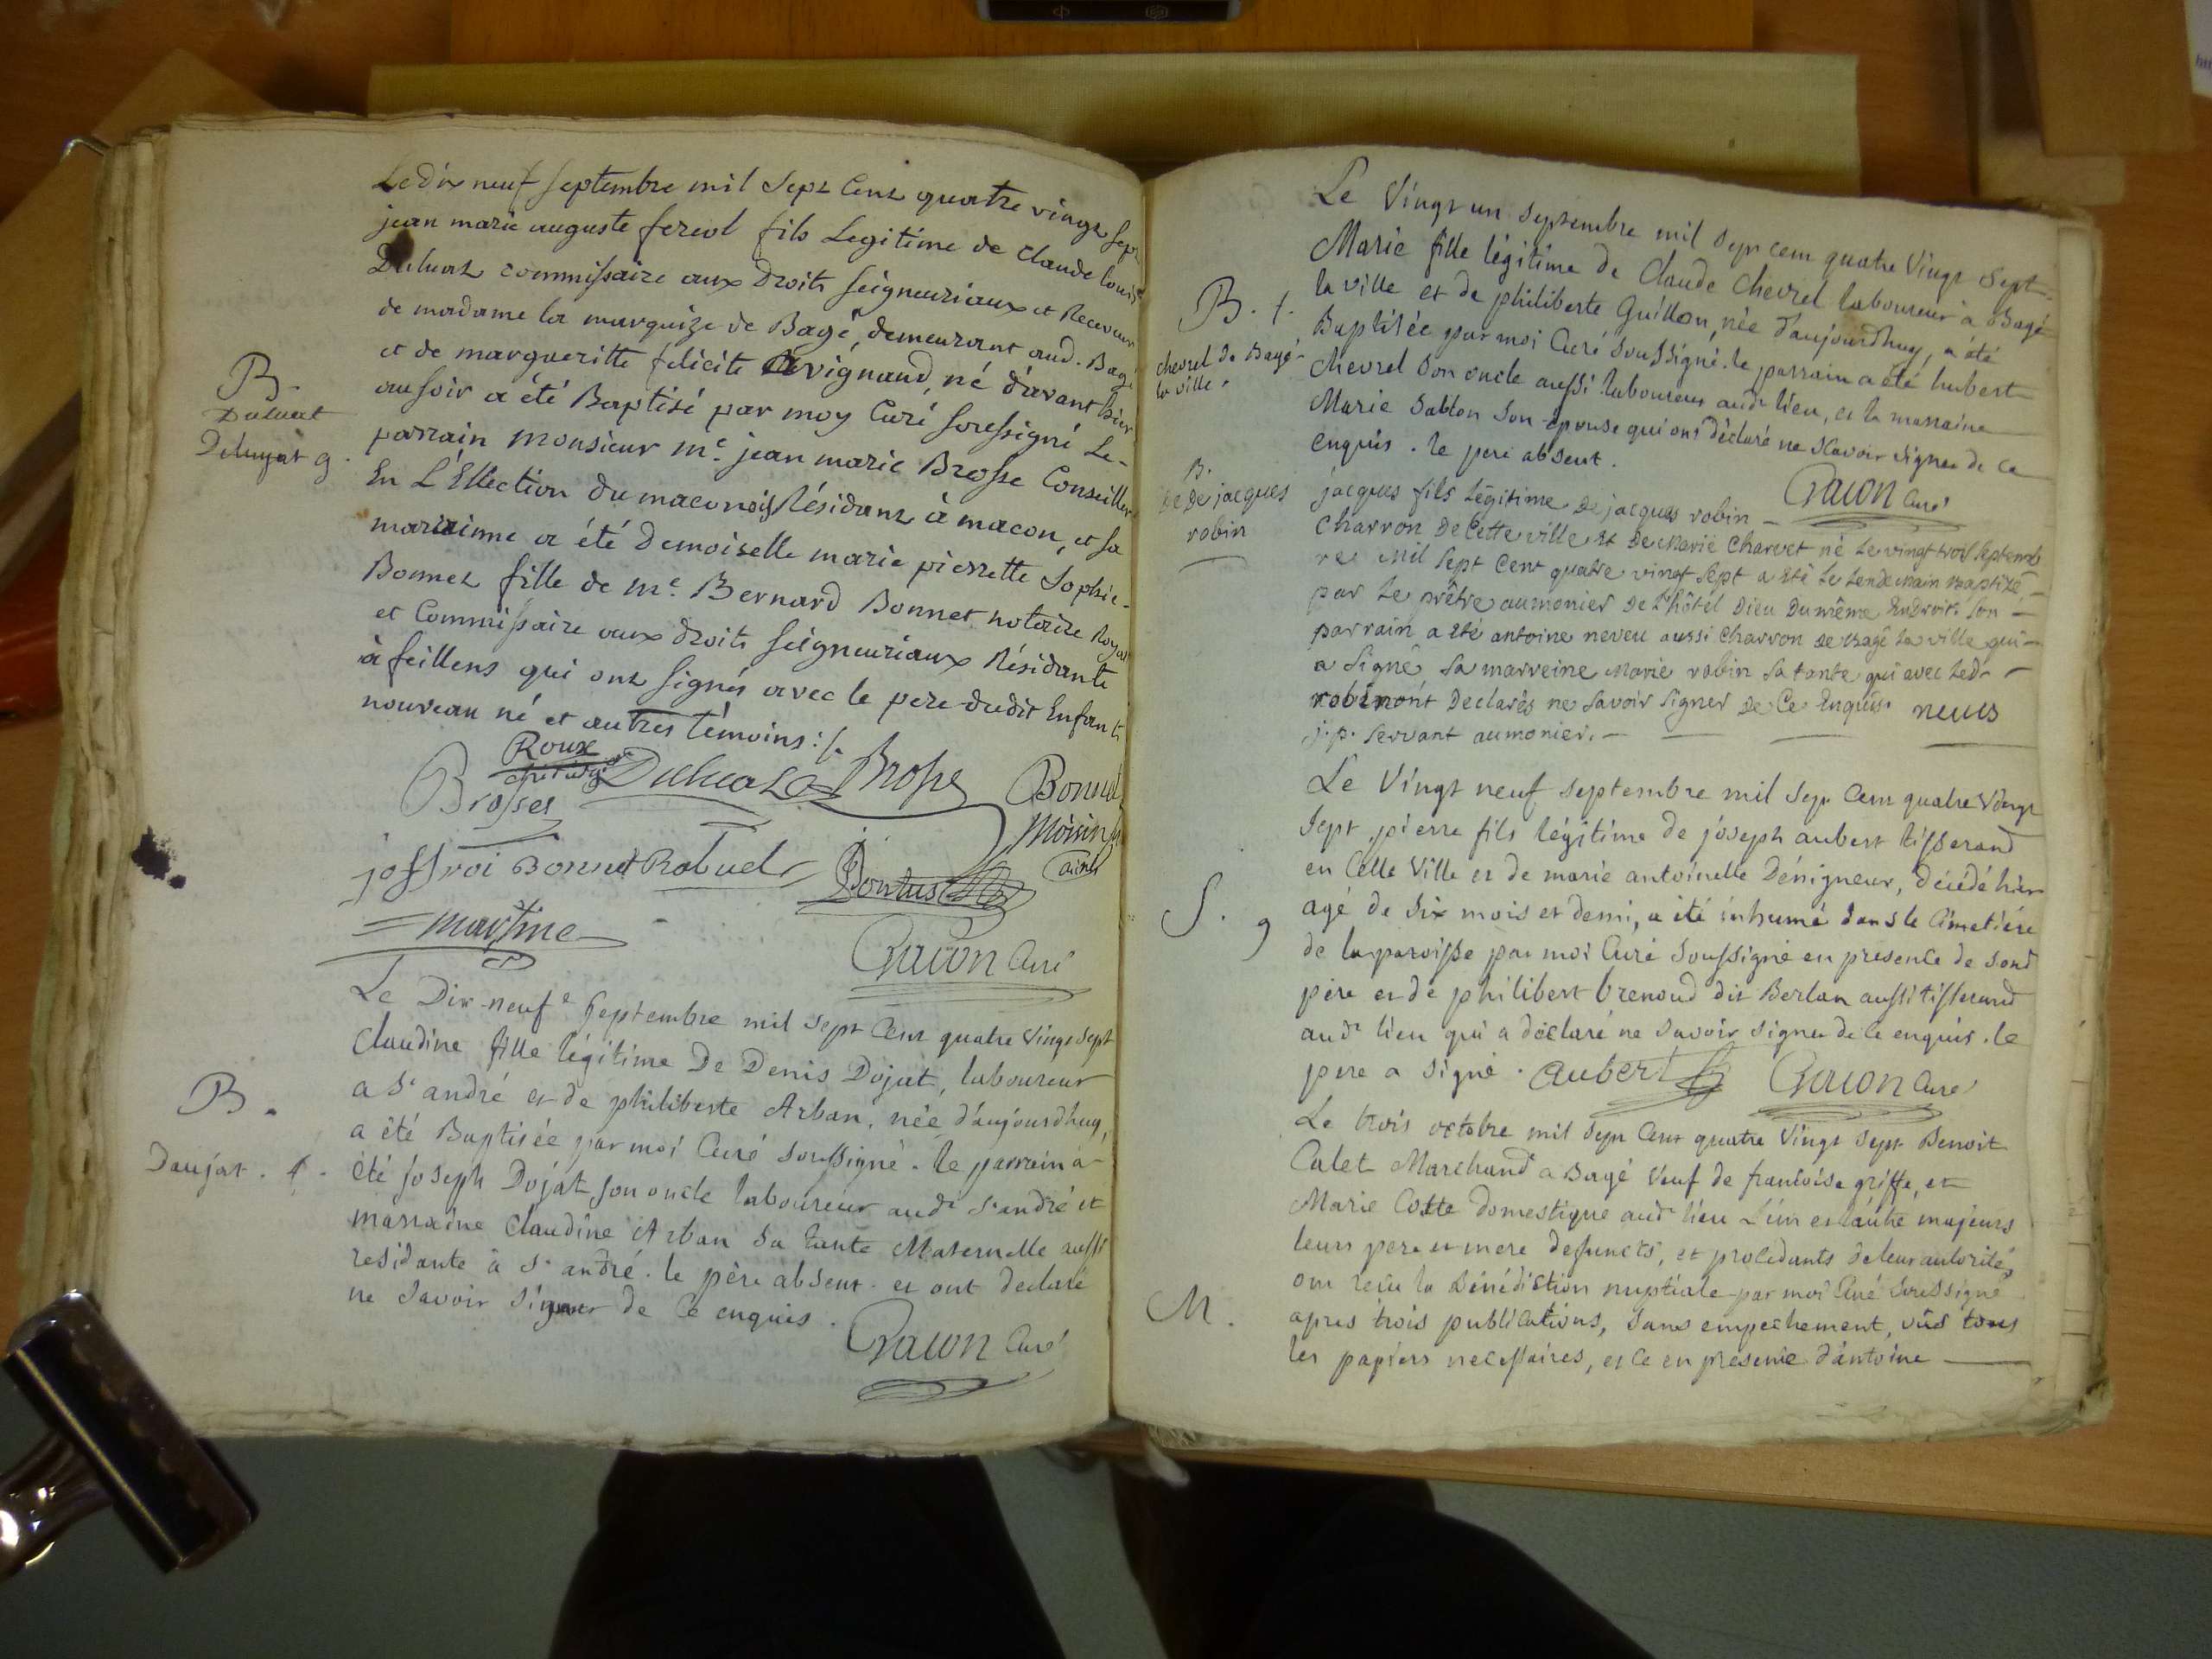 Le dix neuf septembre mil sept cent quatre vingt sept
jean marie auguste fereol fils Legitime de Claude louis
Duhuat commissaire aux Droits seigneuriaux et Receveur
de madame la marquize de Bagé, demeurant aud. Bagé
et de margueritte felicite vignaud, né d'avant hier
au soir a été Baptisé par moy Curé soussigné Le
parrain monsieur me. jean marie Brosse Conseiller
En L'Ellection du maconois Résidant à macon, et sa
marrainne a été Demoiselle marie pierrette Sophie
Bonnet fille de me. Bernard Bonnet notaire Royal
et Commissaire aux droits seigneuriaux Résidante
à feillens qui ont signés avec le pere dudit Enfant
nouveau né et autres témoins :/.
B.
Duhuat
g.
Roux
Brosses
Duhuat
Brosse
Bonnet
Moisin
ainé
joffroi Bonnet Rabuel
Pontus
martine
Gacon Curé
Le Dix-neufe Septembre mil sept Cent quatre vingt sept
Claudine fille légitime De Denis Dojat, laboureur
a St andré et de philiberte Arban, née d'aujourdhuy,
a été Baptisée par moi Curé soussigné. le parrain a
été joseph Dojat son oncle laboureur audt St andré et
marraine Claudine Arban sa tante Maternelle aussi
residante à St andré. le père absent. et ont declaré
ne savoir signer de ce enquis.
B.
Daujat. f.
Gacon Curé
Le Vingt un septembre mil sept cent quatre Vingt Sept
Marie fille légitime de Claude Chevrel laboureur à Bagé
la ville et de philiberte Guillon, née d'aujourdhuy, a été
Baptisée par moi Curé soussigné. le parrain a été hubert
chevrel son oncle aussi laboureur audt lieu, et la marraine
Marie Sablon son epouse qui ont déclaré ne scavoir signer de ce
enquis. le pere absent.
B. f.
chevrel de Bagé
la ville.
Gacon Curé
B.
De jacques
robin
jacques fils Légitime de jacques robin
Charron De Cette ville et De Marie Charvet né Le vingt trois septemb
re Mil Sept Cent quatre vingt sept a été Le Lendemain Baptizé
par Le prêtre aumonier De L'hôtel Dieu Du même Endroit. son
parrain a été antoine neveu aussi Charron de Bagé La ville qui
a signé, sa marreine Marie robin sa tante qui avec Led.
robin ont Declarés ne savoir signer De Ce Enquis. neveu
j.p. Servant aumonier.
Le Vingt neuf septembre mil sept Cent quatre Vingt
Sept, pierre fils légitime de joseph aubert tisserand
en Cette Ville et de marie antoinette Dénigneur, décédé hier
agé de six mois et demi, a été inhumé dans le Cimetière
de la paroisse par moi Curé soussigné en presence de sond
père et de philibert brenoud dit Berlan aussi tisserand
audt lieu qui a déclaré ne savoir signer de ce enquis. le
pere a signé. aubert
S. g
Gacon Curé
Le trois octobre mil sept Cent quatre Vingt sept Benoit
Calet Marchand a Bagé Veuf de francoise griffe, et
Marie Cotte domestique audt lieu L'un et l'autre majeurs
leurs pere et mere defuncts, et procedants de leur autorité,
ont reçu la Bénédiction nuptiale par moi Curé soussigné
apres trois publications, sans empechement, vûs tous
les papiers necessaires, et ce en presence d'antoine
M.